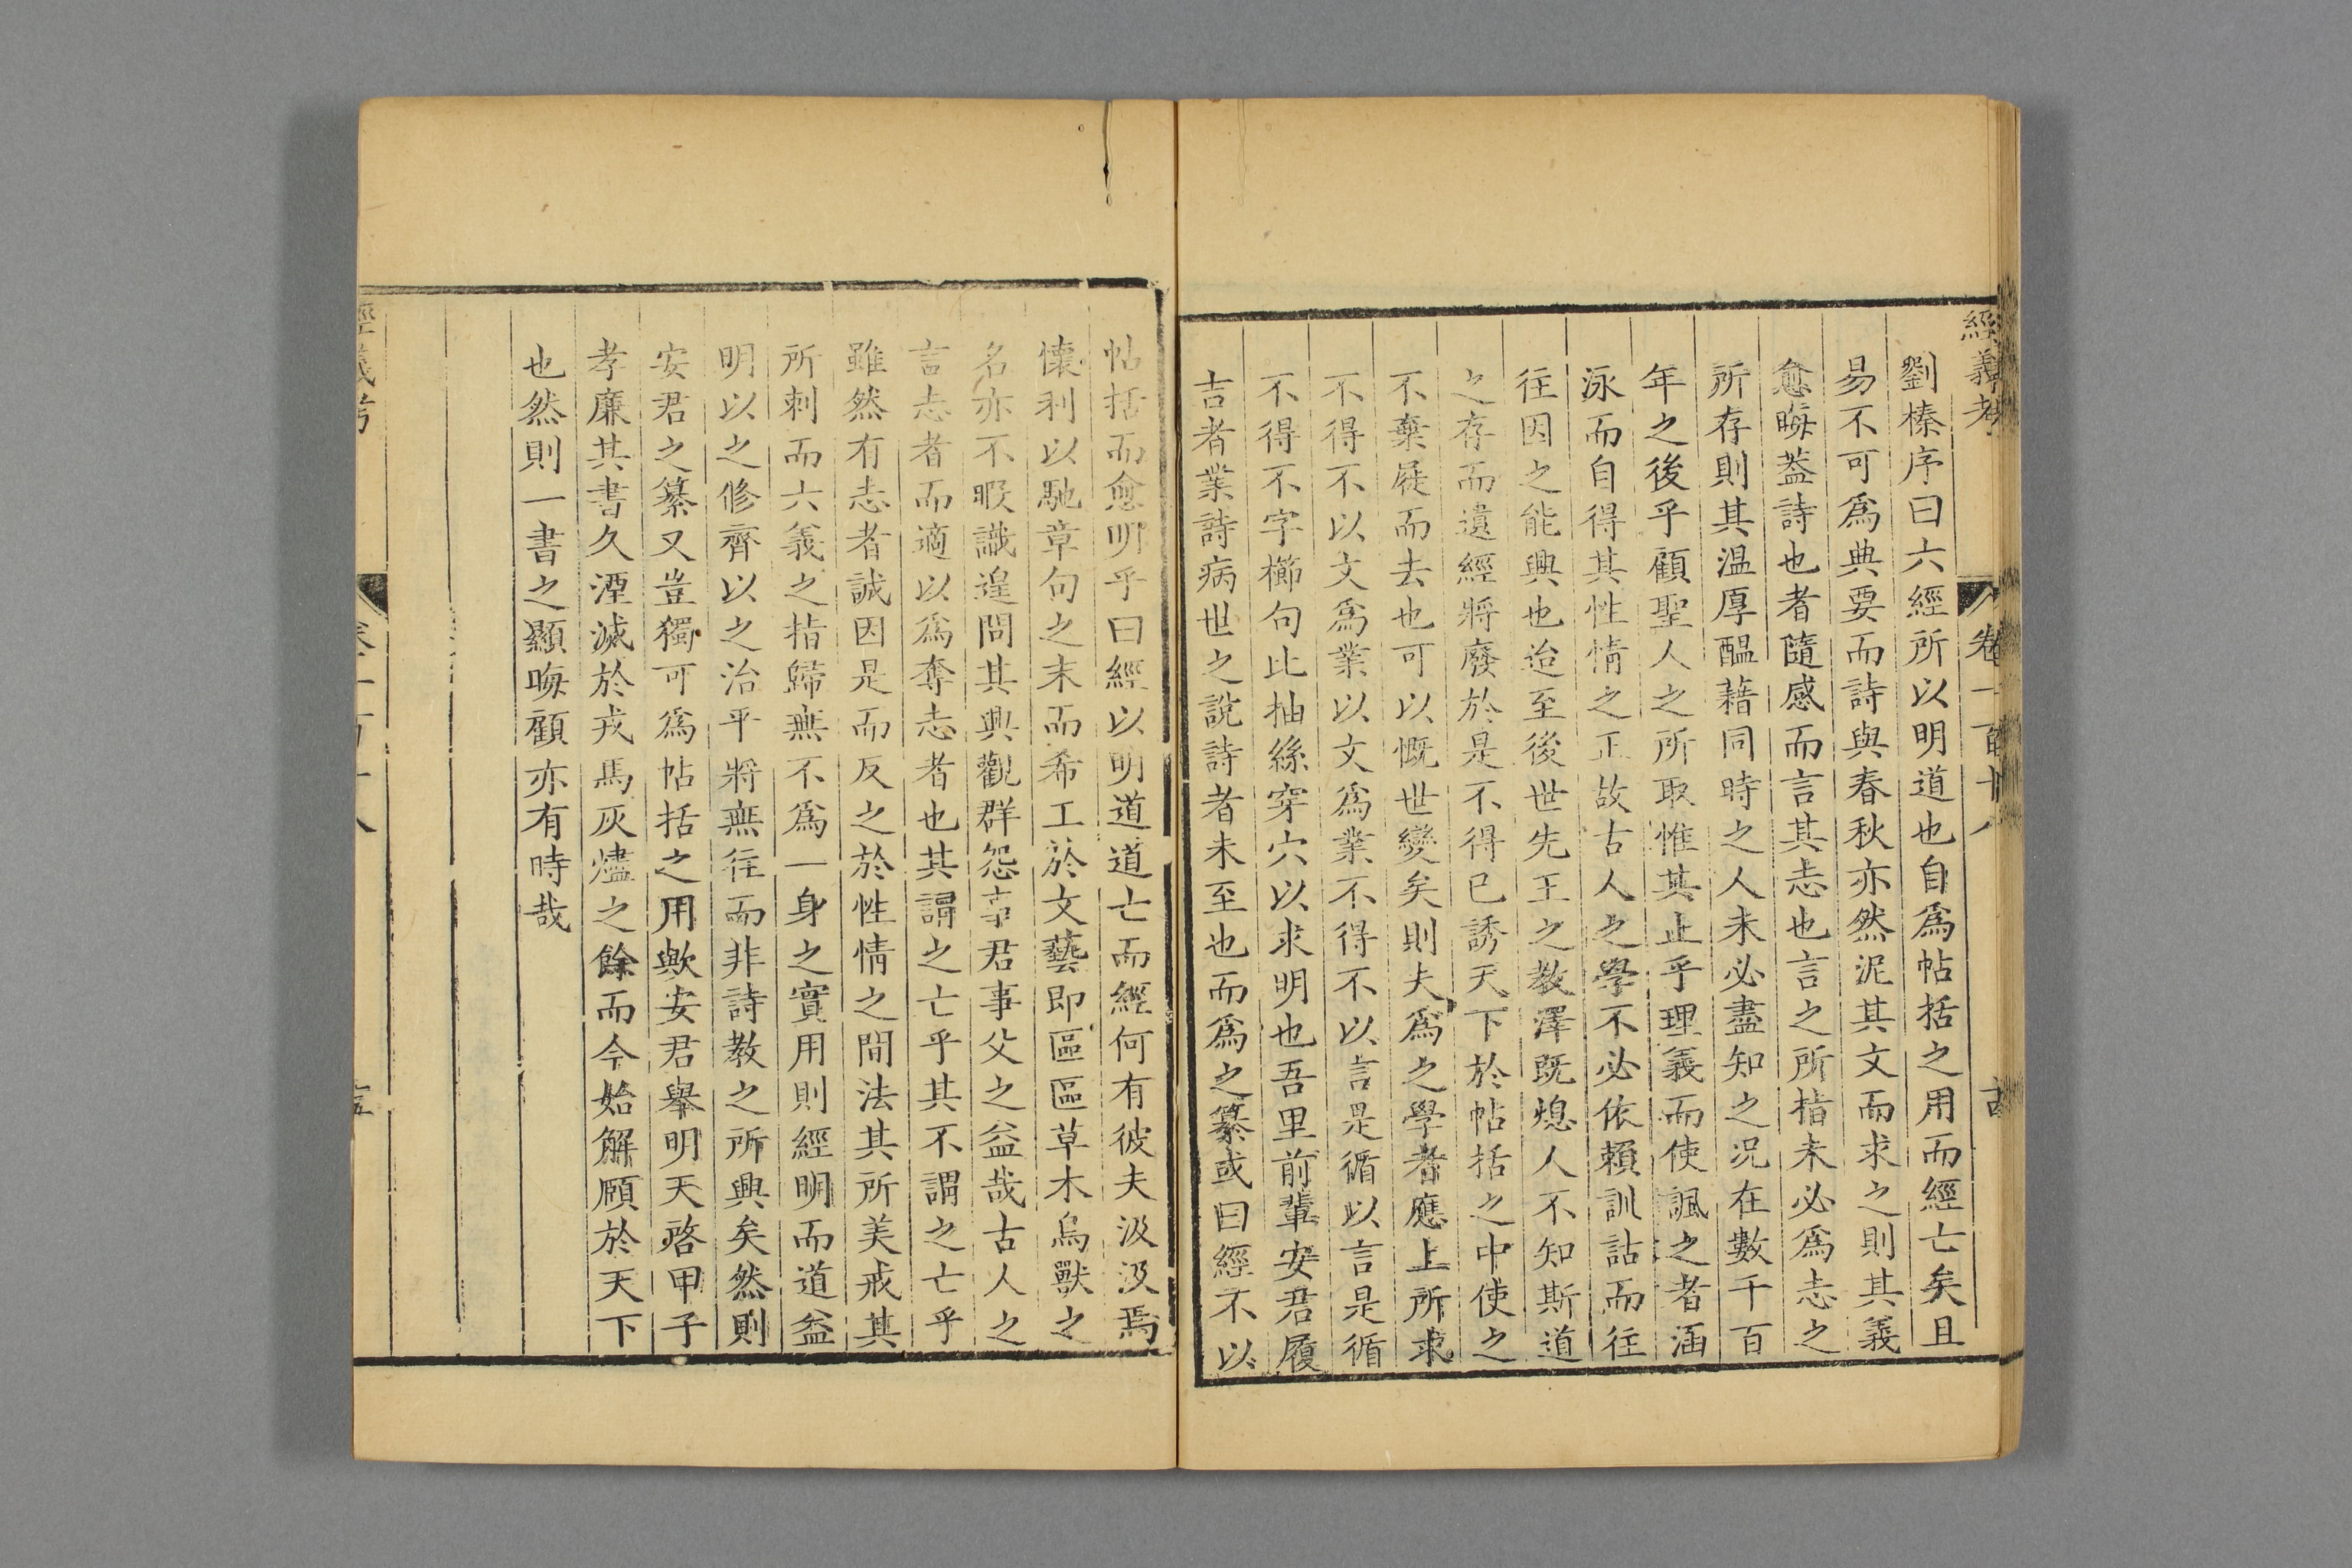 經義考
卷一百十八
劉榛序曰六經所以明道也自爲帖括之用而經亡矣且
易不可爲典要而詩與春秋亦然泥其文而求之則其義
愈晦葢詩也者隨感而言其志也言之所指未必爲志之
所存則其温厚醞藉同時之人未必盡知之况在數千百
年之後乎顧聖人之所取惟其止乎理義而使諷之者涵
泳而自得其性情之正故古人之學不必依賴訓詁而往
往因之能興也迨至後世先王之教澤既熄人不知斯道
之存而遺經將廢於是不得已誘天下於帖括之中使之
不棄屣而去也可以慨世變矣則夫爲之學者應上所求
不得不以文爲業以文爲業不得不以言是循以言是循
不得不字櫛句比抽絲穿穴以求明也吾里前輩安君履
吉者業詩病世之說詩者未至也而爲之纂或曰經不以
帖括而愈明乎曰經以明道道亡而經何有彼夫汲汲焉
懷利以馳章句之末而希工於文藝即區區草木鳥獸之
名亦不暇識遑問其興觀群怨事君事父之益哉古人之
言志者而適以爲奪志者也其謂之亡乎其不謂之亡乎
雖然有志者誠因是而反之於性情之間法其所美戒其
所刺而六義之指歸無不爲一身之實用則經明而道益
明以之修齊以之治平將無往而非詩教之所興矣然則
安君之纂又豈獨可爲帖括之用歟安君舉明天啓甲子
孝廉其書久湮滅於戎馬灰燼之餘而今始解頤於天下
也然則一書之顯晦顧亦有時哉
經義考